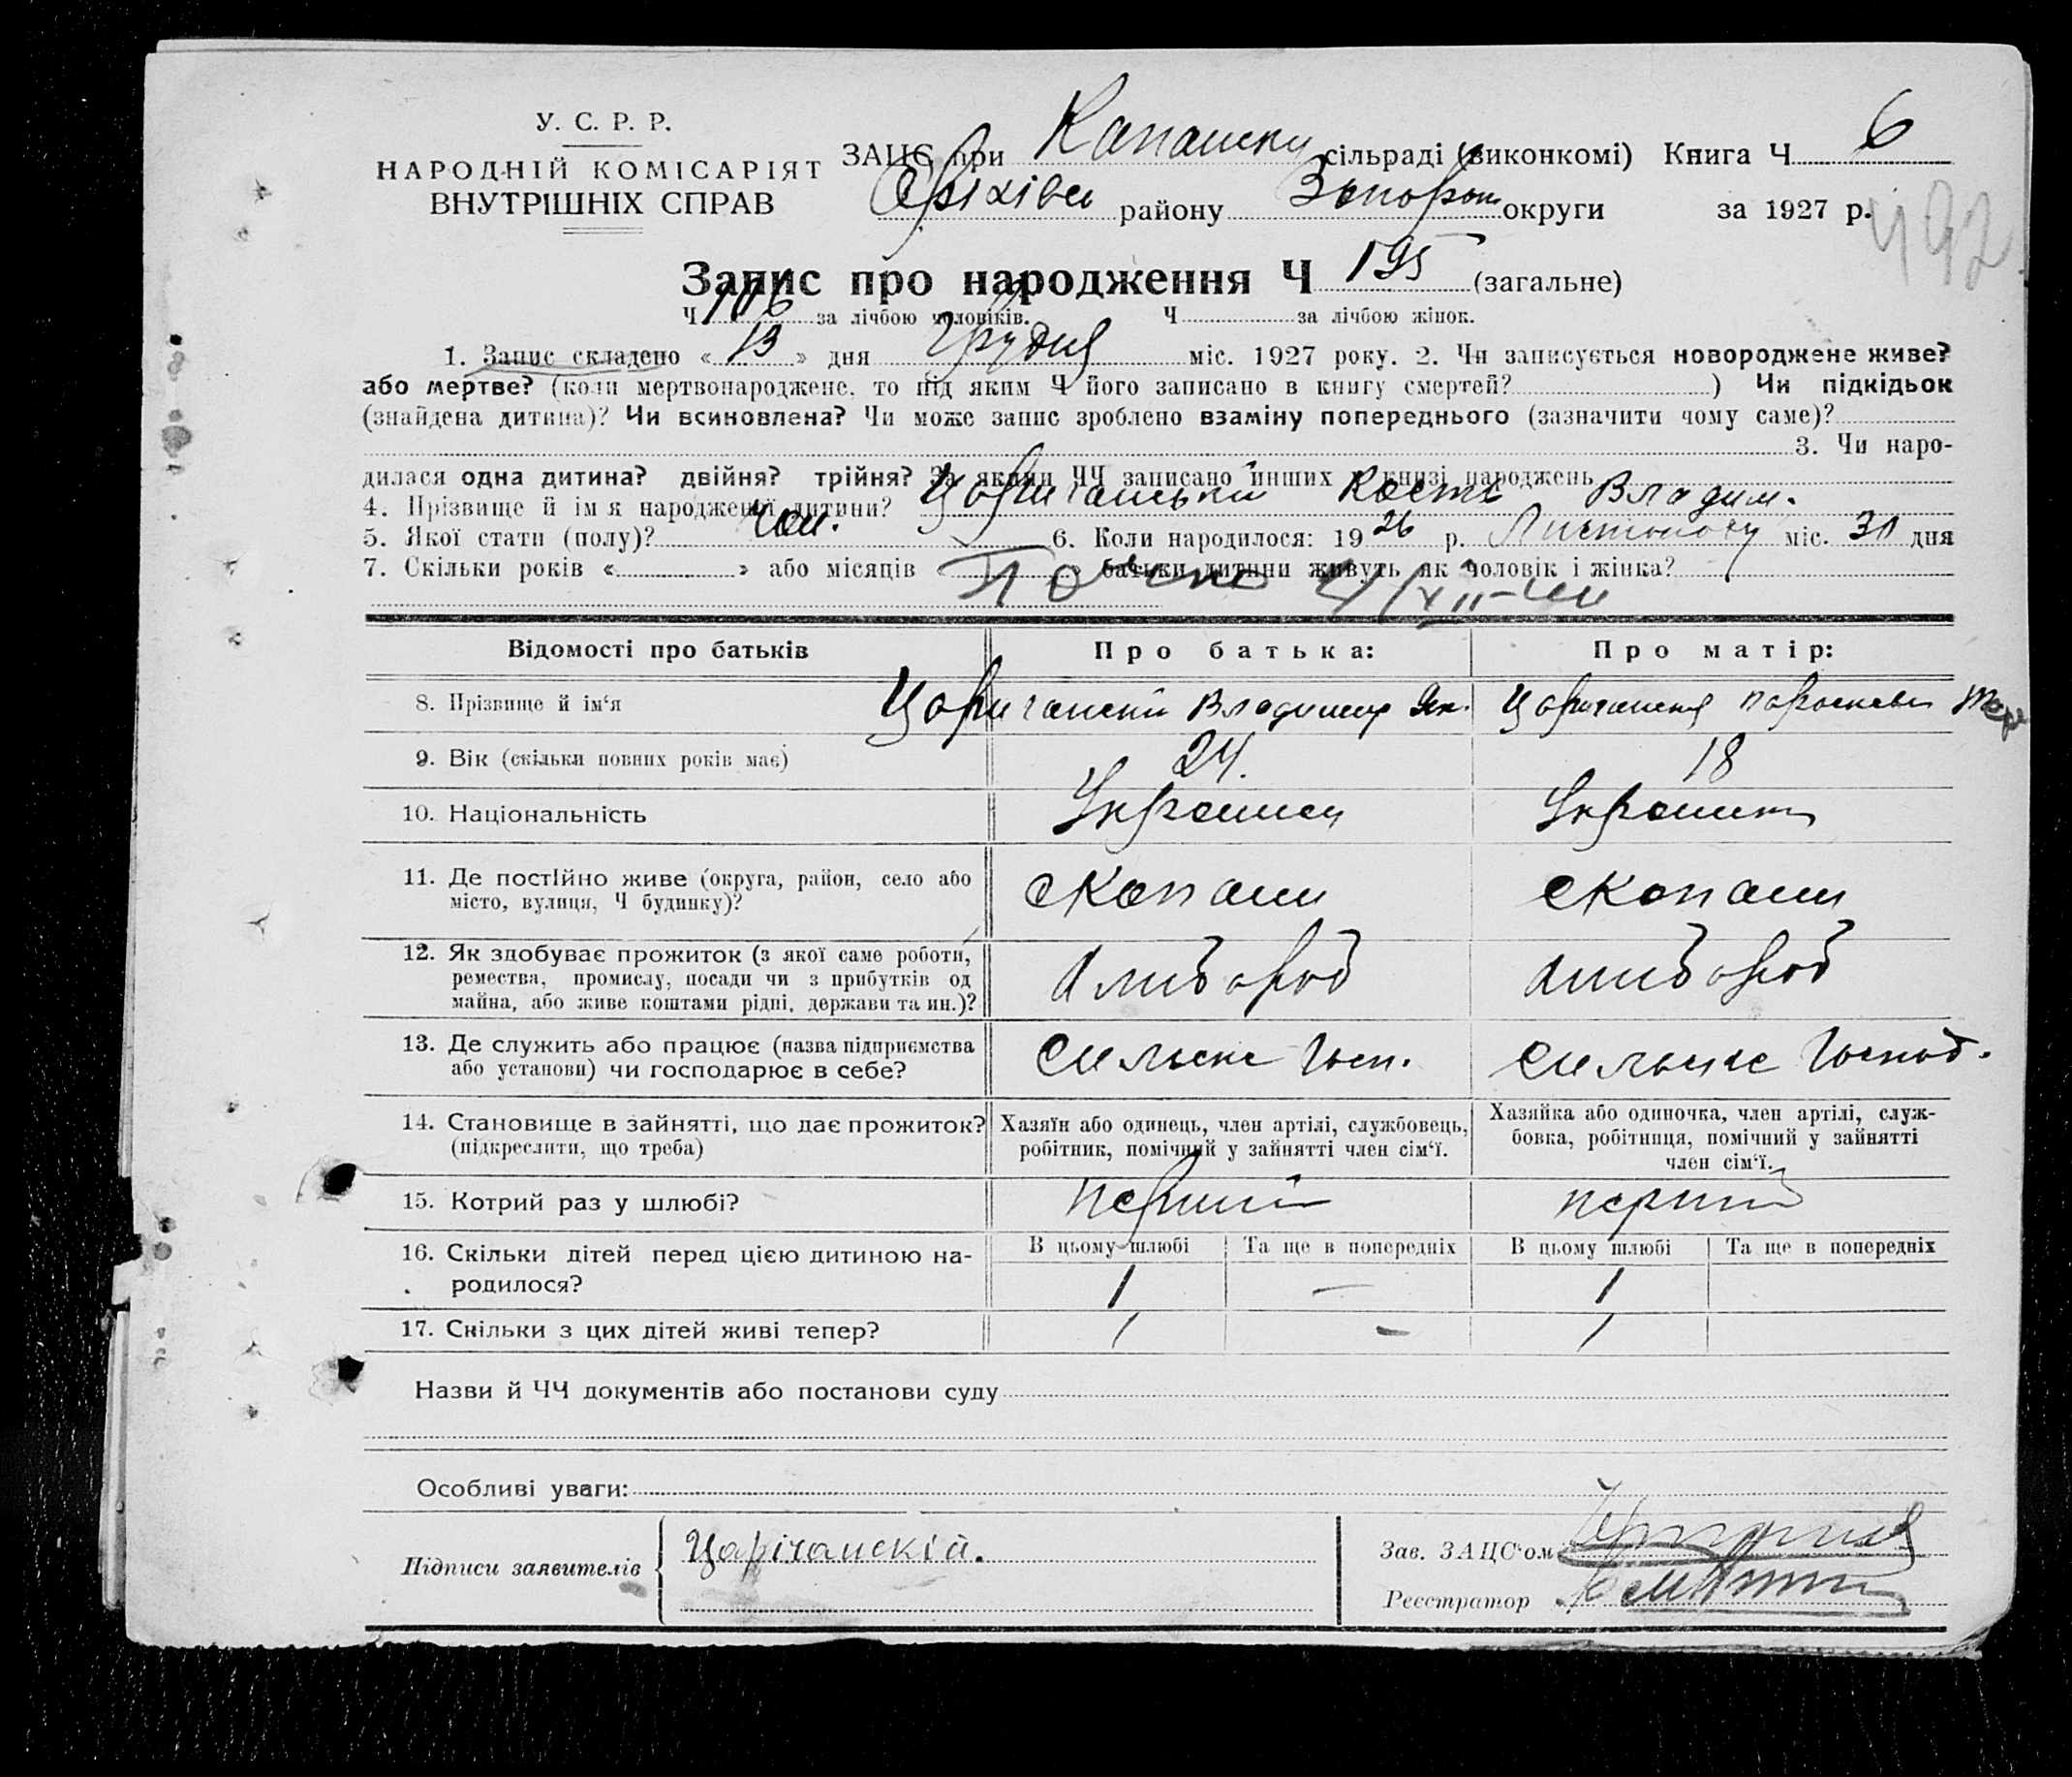 У. С. Р. Р.
НАРОДНІЙ КОМІСАРІЯТ
ВНУТРІШНІХ СПРАВ
ЗАЦС при Копанську сільраді (виконкомі) Книга Ч 6
Оріхівсь району Запоріж округи за 1927 р.
492
Запис про народження Ч 195 (загальне)
Ч 106 за лічбою чоловіків. Ч за лічбою жінок.
1. Запис складено « 13 » дня Грудня міс. 1927 року. 2. Чи записується новороджене живе?
або мертве? (коли мертвонароджене, то під яким Ч його записано в книгу смертей? ) Чи підкідьок
(знайдена дитина)? Чи всиновлена? Чи може запис зроблено взаміну попереднього (зазначити чому саме)?
3. Чи наро-
дилася одна дитина? двійня? трійня? За якими ЧЧ записано инших у книзі народжень
4. Прізвище й ім я народженої дитини? Царичанський Кость Владим.
5. Якої стати (полу)? чол. 6. Коли народилося: 19 26 р. Листопаду міс. 30 дня
7. Скільки років « » або місяців « » батьки дитини живуть як чоловік і жінка?
Відомості про батьків Про батька: Про матір:
8. Прізвище й ім'я Царичанский Владимир Як. Царичанская Парасковя
9. Вік (скільки повних років має) 24. 18
10. Національність Українец Українка
11. Де постійно живе (округа, район, село або
місто, вулиця, Ч будинку)? с Копани с Копани
12. Як здобуває прожиток (з якої саме роботи,
ремества, промислу, посади чи з прибутків од
майна, або живе коштами рідні, держави та ин.)? хлибороб хлибороб
13. Де служить або працює (назва підприємства
або установи) чи господарює в себе? Сильске Госп. Сильске Господ.
14. Становище в зайнятті, що дає прожиток?
(підкреслити, що треба)
Хазяїн або одинець, член артілі, службовець,
робітник, помічний у зайнятті член сім'ї.
Хазяйка або одиночка, член артілі, служ-
бовка, робітниця, помічний у зайнятті
член сім'ї.
15. Котрий раз у шлюбі? первий перший
16. Скільки дітей перед цією дитиною на-
родилося?
В цьому шлюбі Та ще в попередніх В цьому шлюбі Та ще в попередніх
1 — 1
17. Скільки з цих дітей живі тепер? 1 — 1
Назви й ЧЧ документів або постанови суду
Особливі уваги:
Підписи заявителів Царічанскій.
Зав. ЗАЦС'ом
Реєстратор